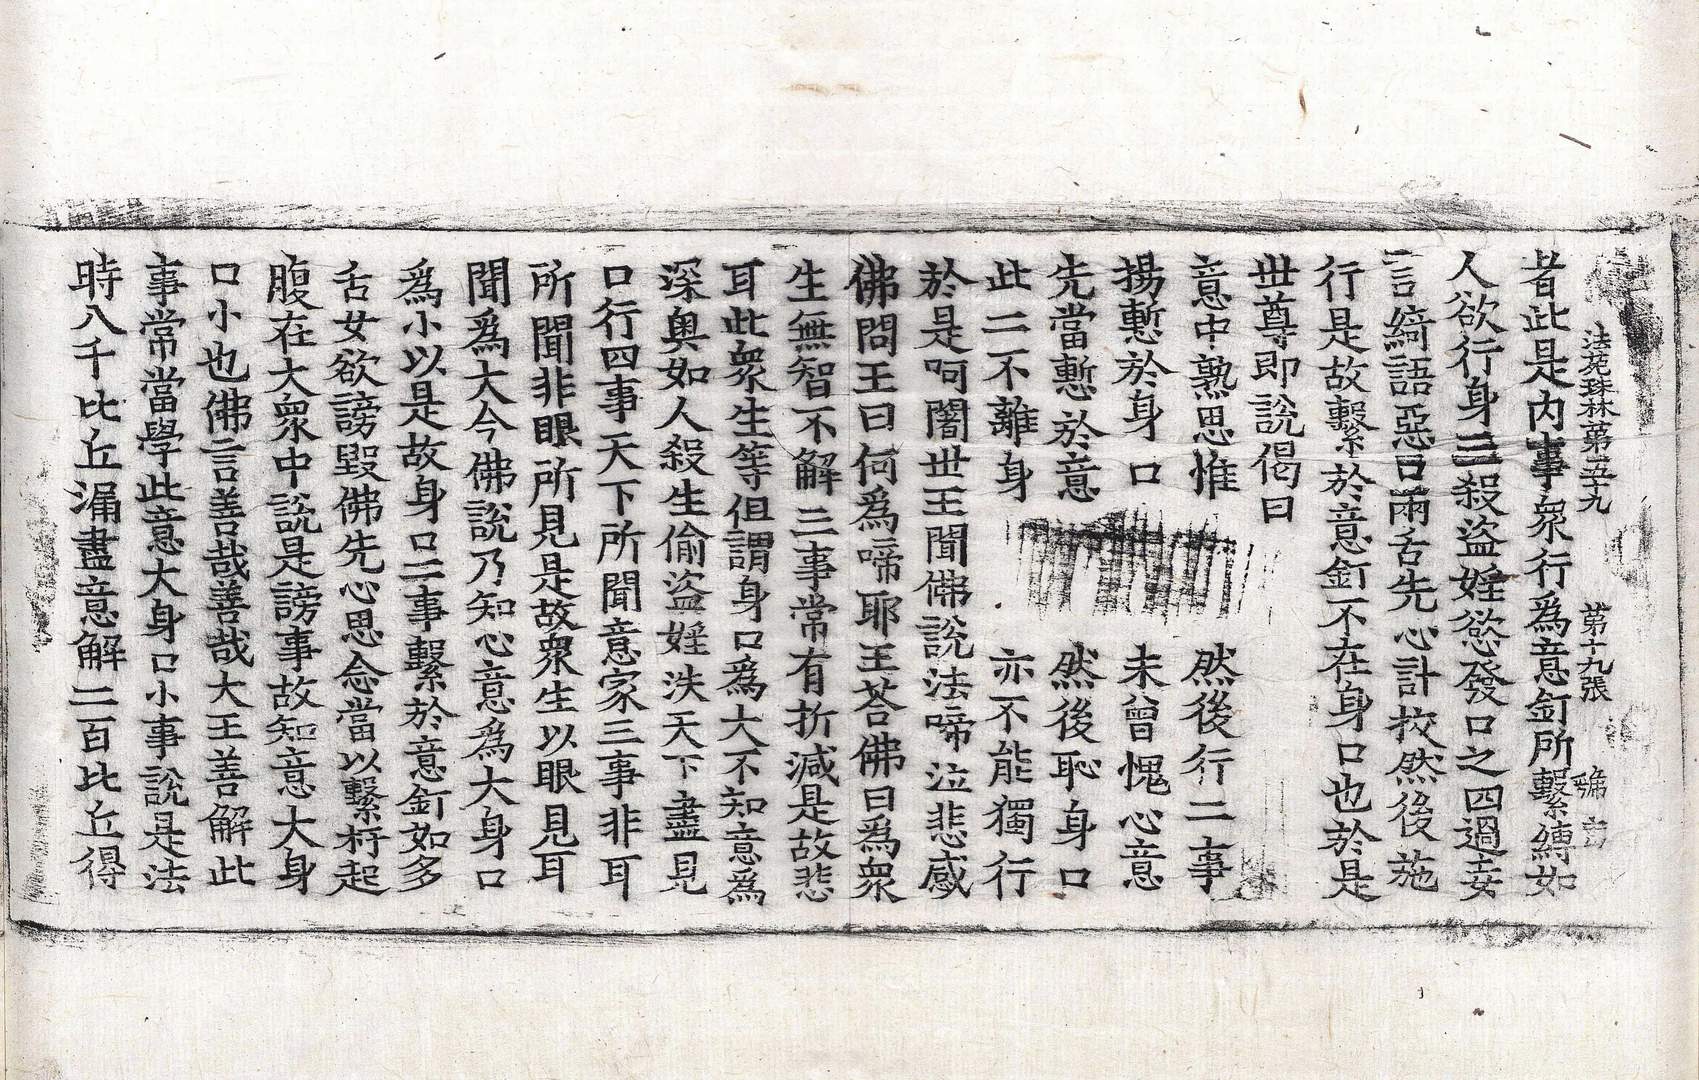 法苑珠林第五十九 第十九張
者此是內事衆行爲意釘所繫縛如
人欲行身三殺盜婬慾發口之四過妄
言綺語惡口兩舌先心計挍然後施
行是故繫於意釘不在身口也於是
世尊即說偈曰
意中熟思惟 然後行二事
揚慙於身口 未曾愧心意
先當慙於意 然後恥身口
此二不離身 亦不能獨行
於是呵闍世王聞佛說法啼泣悲感
佛問王曰何爲啼耶王荅佛曰爲衆
生無智不解三事常有折減是故悲
耳此衆生等但謂身口爲大不知意爲
深奧如人殺生偷盜婬泆天下盡見
口行四事天下所聞意家三事非耳
所聞非眼所見是故衆生以眼見耳
聞爲大今佛說乃知心意爲大身口
爲小以是故身口二事繫於意釘如多
舌女欲謗毀佛先心思念當以繫杅起
腹在大衆中說是謗事故知意大身
口小也佛言善哉善哉大王善解此
事常當學此意大身口小事說是法
時八千比丘漏盡意解二百比丘得